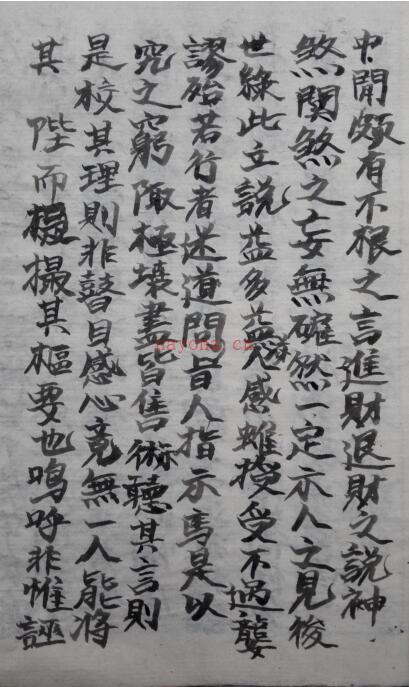 中間頗有不根之言進財退財之說神
煞関煞之妄無確然一定示人之見後
世緣此立說益多益人感雖授受不過襲
謬殆若行者迷道問盲人指示焉是以
究之窮陬極壤盡皆售術聽其言則
是校其理則非瞽目感心竟無一人能将
其陛而撮其樞要也鳴呼非惟誣
nayona.cn